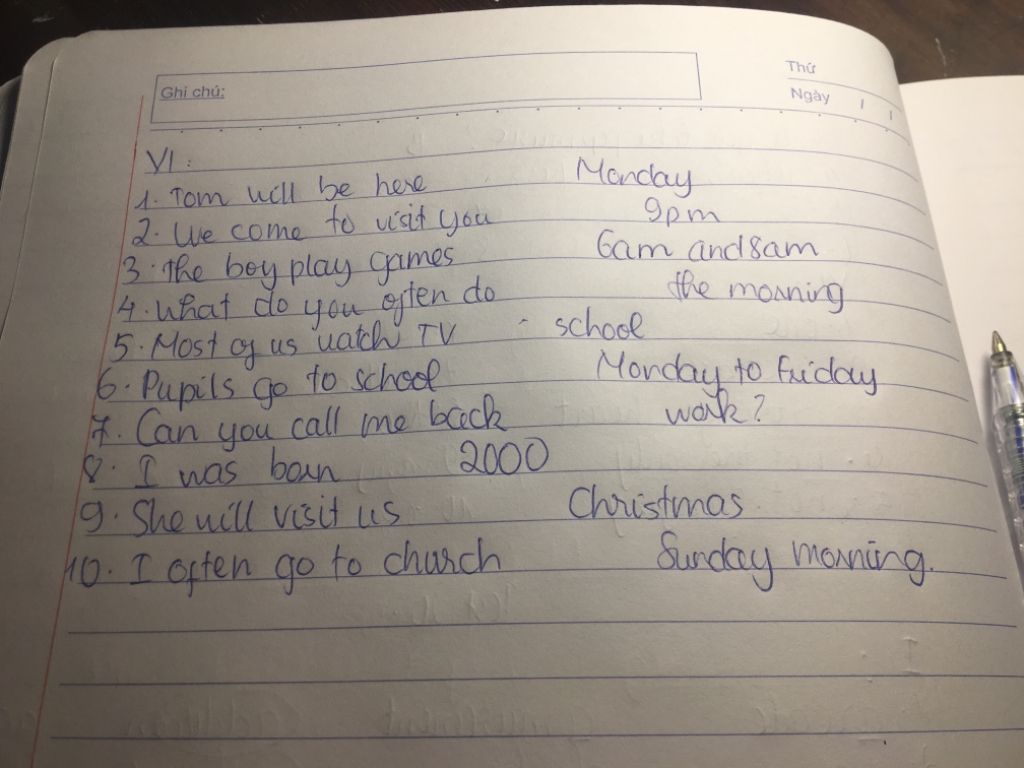 Ghi chú:
Thứ
Ngày / /
VI:
1. Tom will be here Monday
2. We come to visit you 9pm
3. the boy play games 6am and 8am
4. What do you often do the morning
5. Most of us watch TV - school
6. Pupils go to school Monday to Friday
7. Can you call me back work?
8. I was born 2000
9. She will visit us Christmas
10. I often go to church Sunday morning.